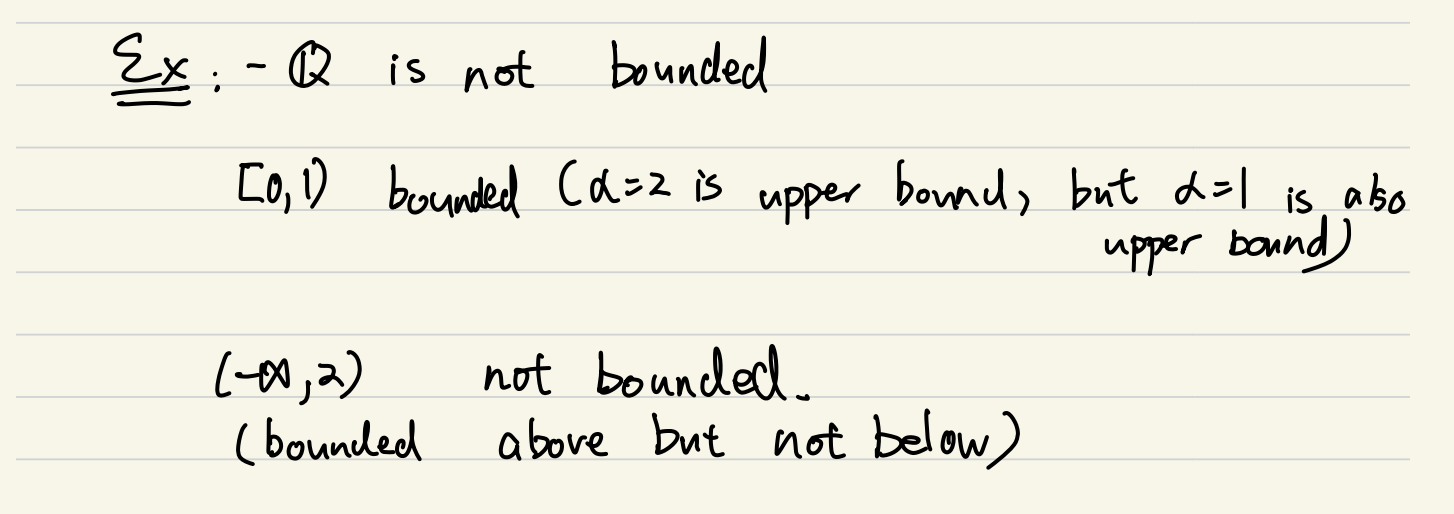 Ex: - ℚ is not bounded
[0,1) bounded (α=2 is upper bound, but α=1 is also
upper bound)
(-∞,2) not bounded.
(bounded above but not below)